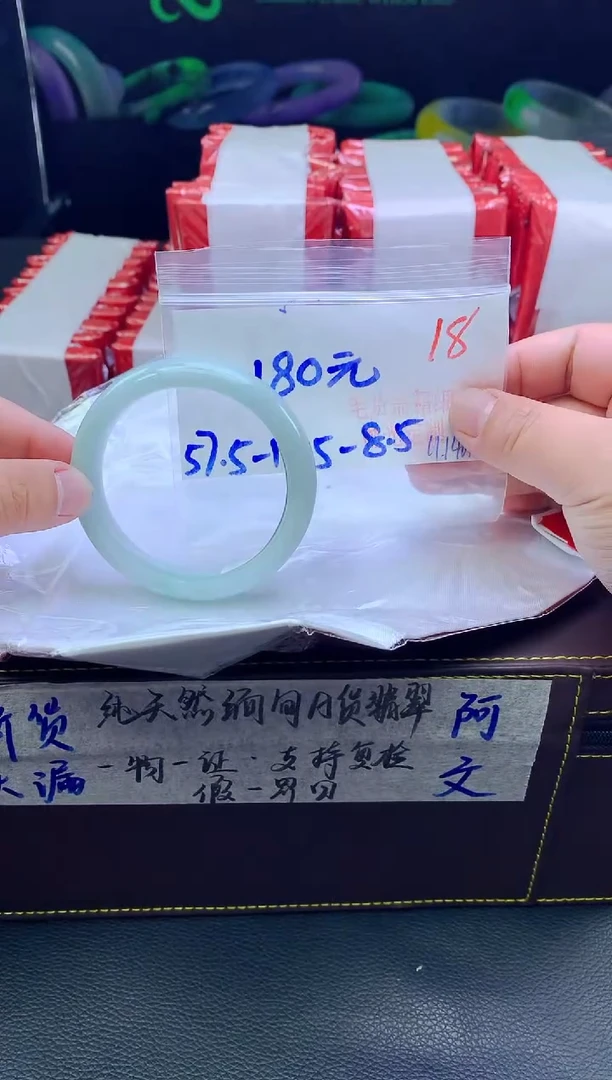 18
180元
57.5-1 5-8.5
纯天然缅甸A货翡翠
阿
货
漏
一物一证·支持复检
文
假一罚四